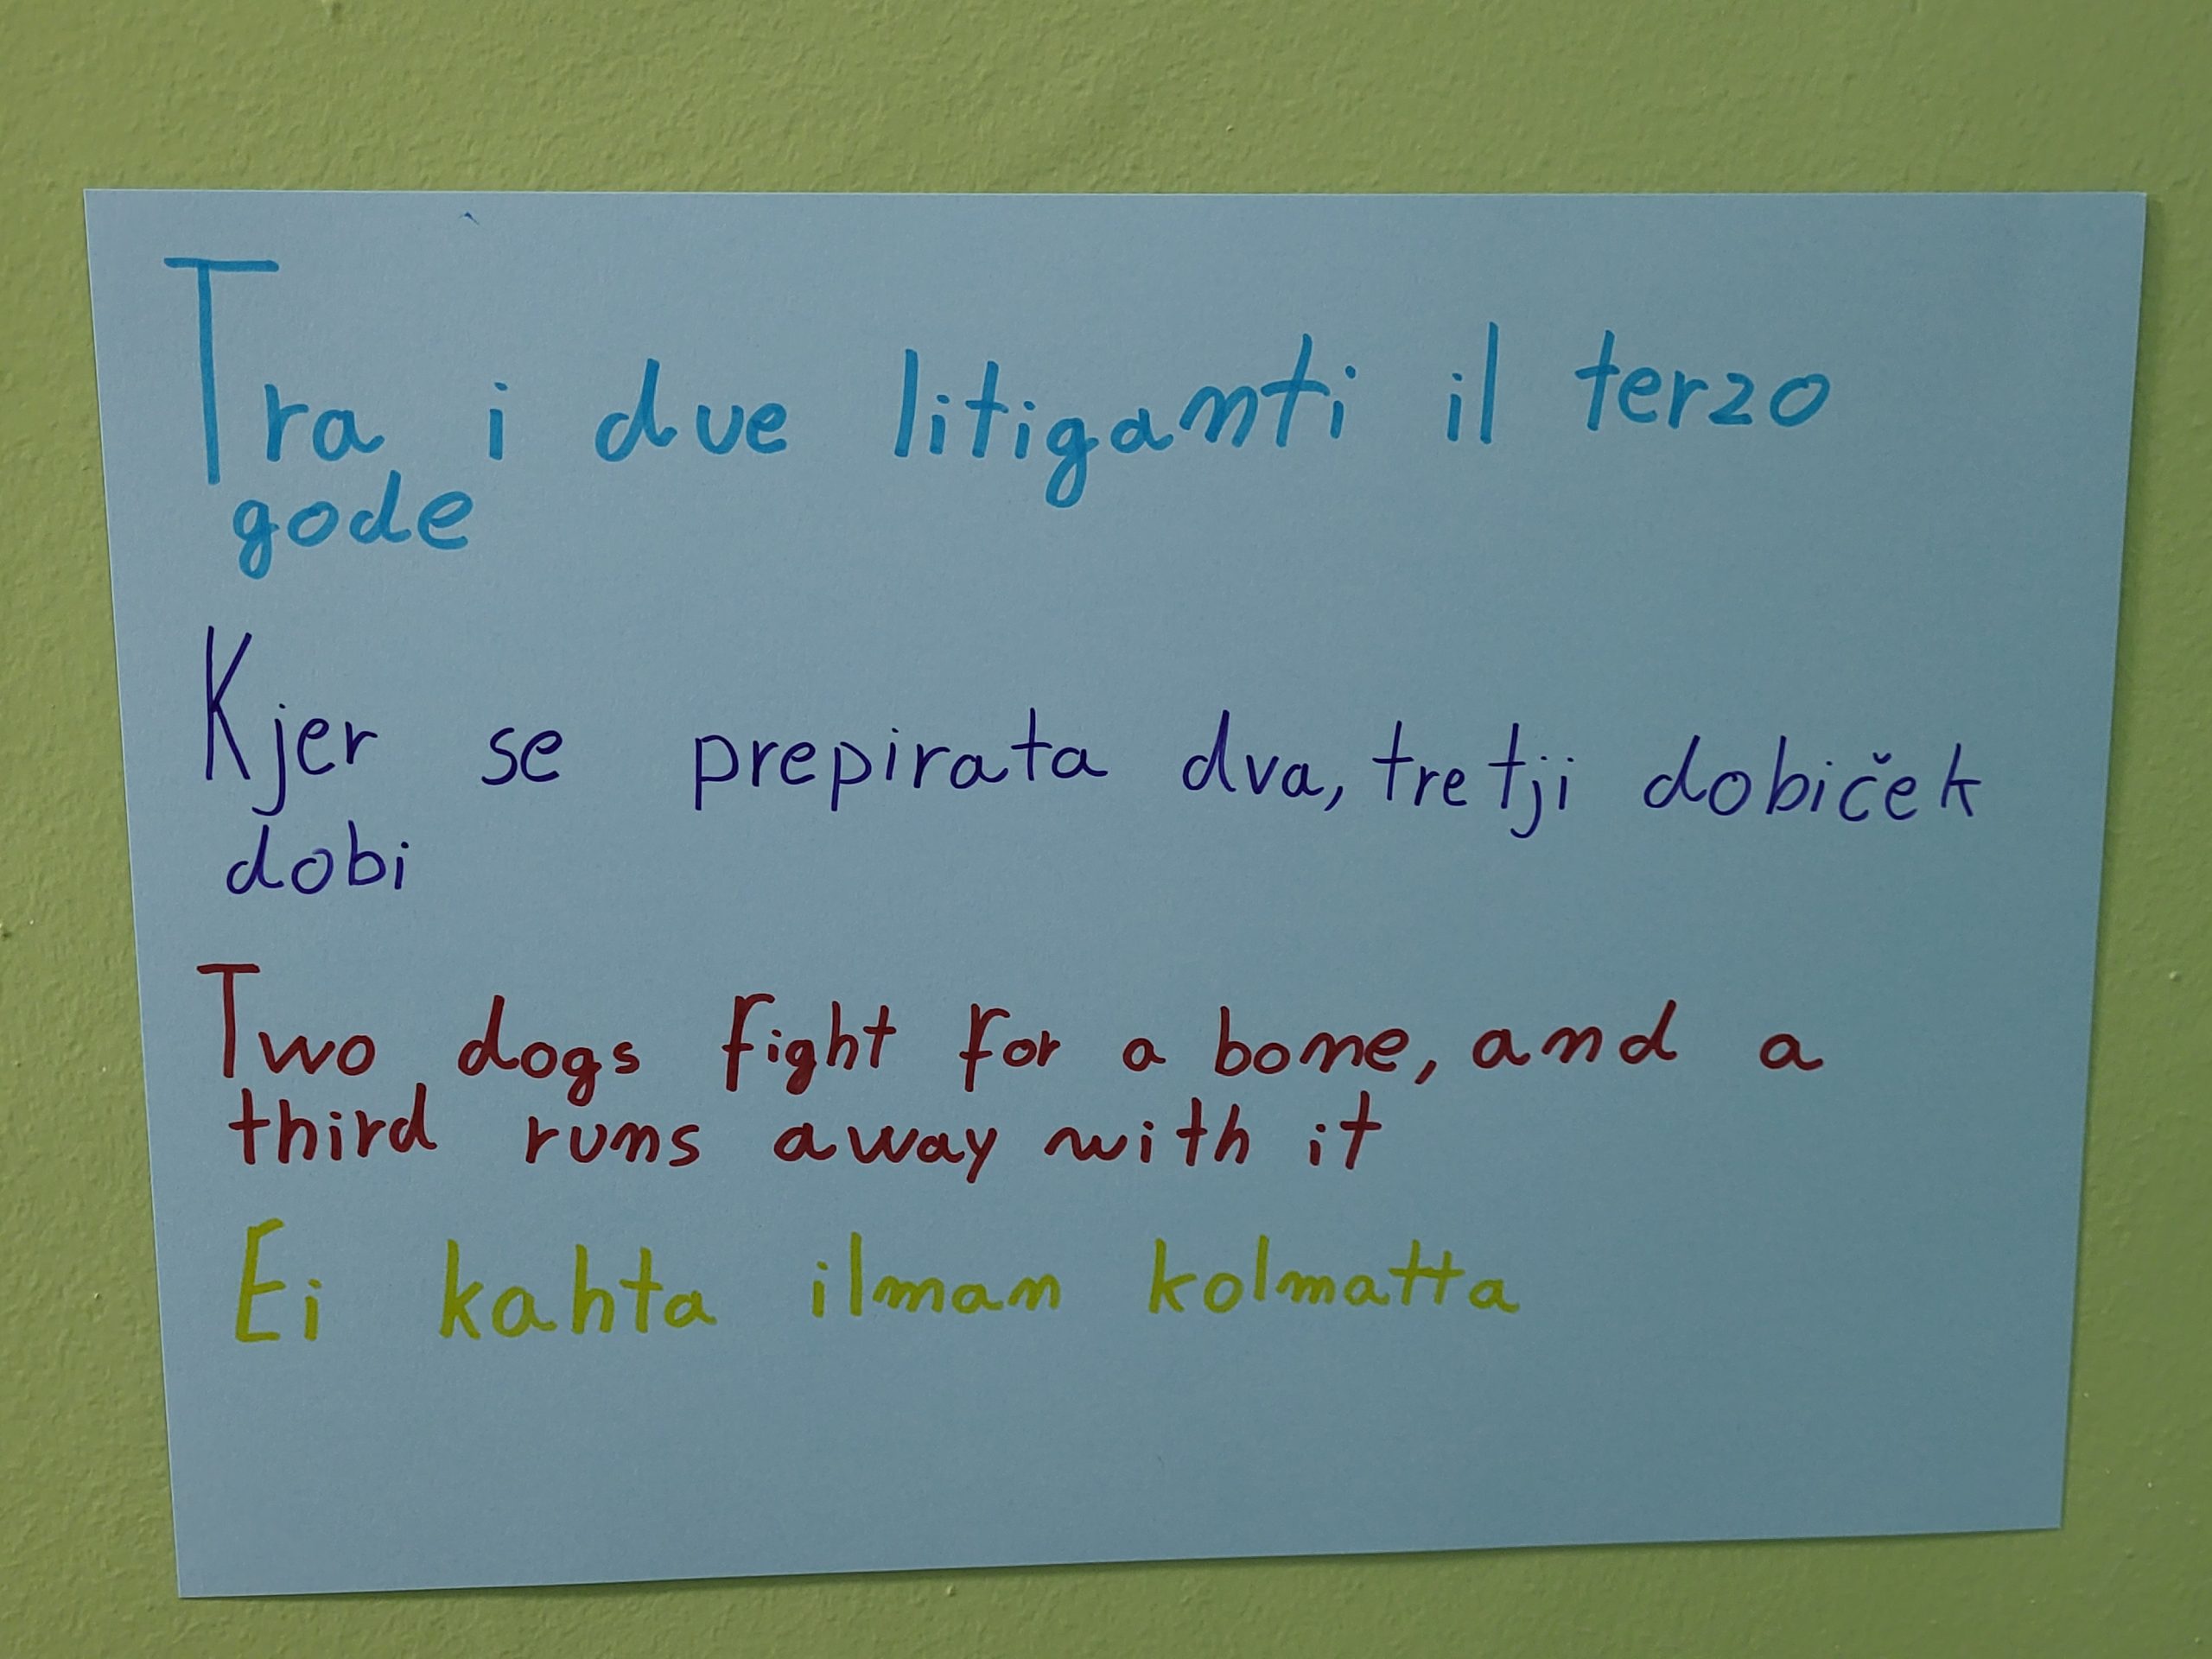 Tra i due litiganti il terzo
gode
Kjer se prepirata dva, tretji dobiček
dobi
Two dogs fight for a bone, and a
third runs away with it
Ei kahta ilman kolmatta